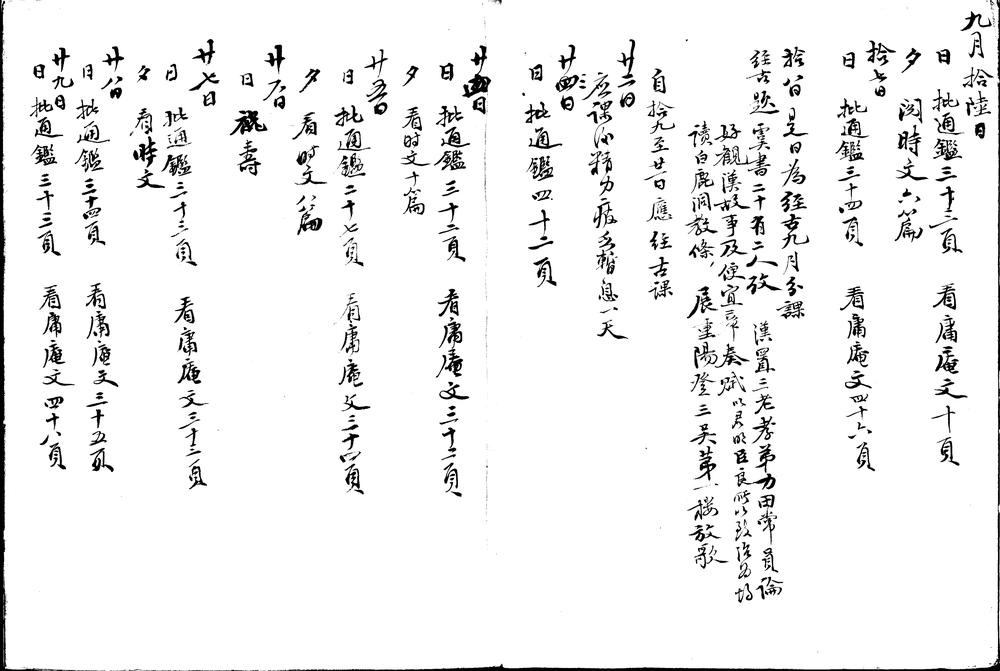 九月拾陸日
日 批通鑑三十三頁 看庸庵文十頁
夕 閱時文六篇
拾七日
日 批通鑑三十四頁 看庸庵文四十六頁
拾八日是日為經古九月分課
經古題 虞書二十有二人攷 漢置三老孝弟力田常員論
好觀漢故事及便宜章奏賦以君明臣良所以致治為韻
讀白鹿洞教條 展重陽登三吳第一樓放歌
自拾九至廿一日應經古課
廿二日
應課後精力疲乏暫息一天
廿三日
日 批通鑑四十二頁
廿四日
日 批通鑑三十二頁 看庸庵文三十二頁
夕 看時文十篇
廿五日
日 批通鑑二十七頁 看庸庵文三十四頁
夕 看時文八篇
廿六日
日 祝壽
廿七日
日 批通鑑二十三頁 看庸庵文三十三頁
夕 看時文
廿八日
日 批通鑑三十四頁 看庸庵文三十五頁
廿九日
日 批通鑑三十三頁 看庸庵文四十八頁